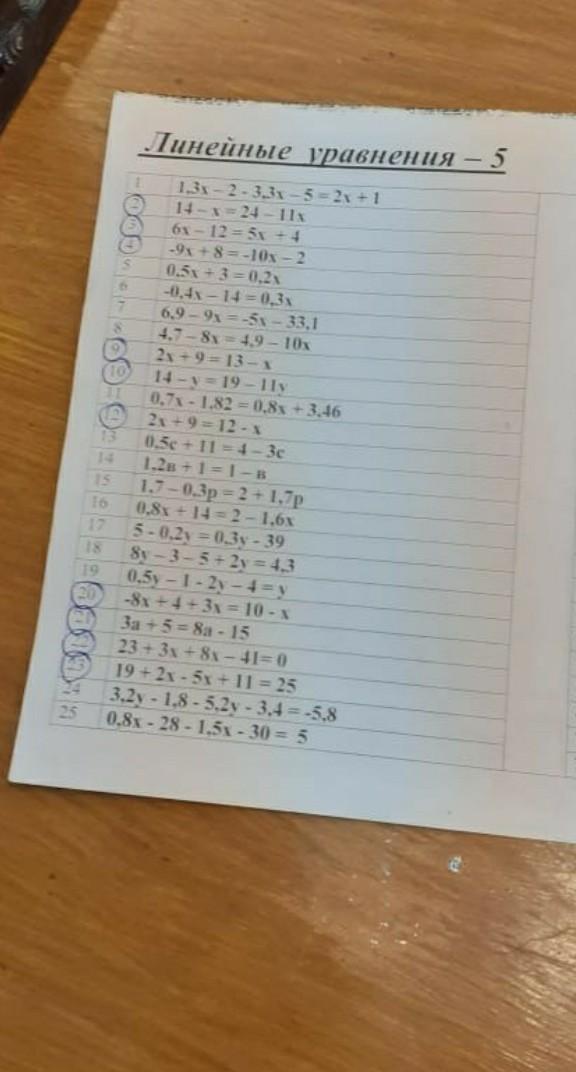 Линейные уравнения – 5
1 1,3х – 2 - 3,3х – 5 = 2х + 1
2 14 – х = 24 – 11х
3 6х – 12 = 5х + 4
4 -9х + 8 = -10х – 2
5 0,5х + 3 = 0,2х
6 -0,4х – 14 = 0,3х
7 6,9 – 9х = -5х – 33,1
8 4,7 – 8х = 4,9 – 10х
9 2х + 9 = 13 – х
10 14 – у = 19 – 11у
11 0,7х - 1,82 = 0,8х + 3,46
12 2х + 9 = 12 - х
13 0,5с + 11 = 4 – 3с
14 1,2в + 1 = 1 – в
15 1,7 – 0,3р = 2 + 1,7р
16 0,8х + 14 = 2 – 1,6х
17 5 - 0,2у = 0,3у - 39
18 8у – 3 – 5 + 2у = 4,3
19 0,5у – 1 - 2у – 4 = у
20 -8х + 4 + 3х = 10 - х
21 3а + 5 = 8а - 15
22 23 + 3х + 8х – 41= 0
23 19 + 2х - 5х + 11 = 25
24 3,2у - 1,8 - 5,2у - 3,4 = -5,8
25 0,8х - 28 - 1,5х - 30 = 5